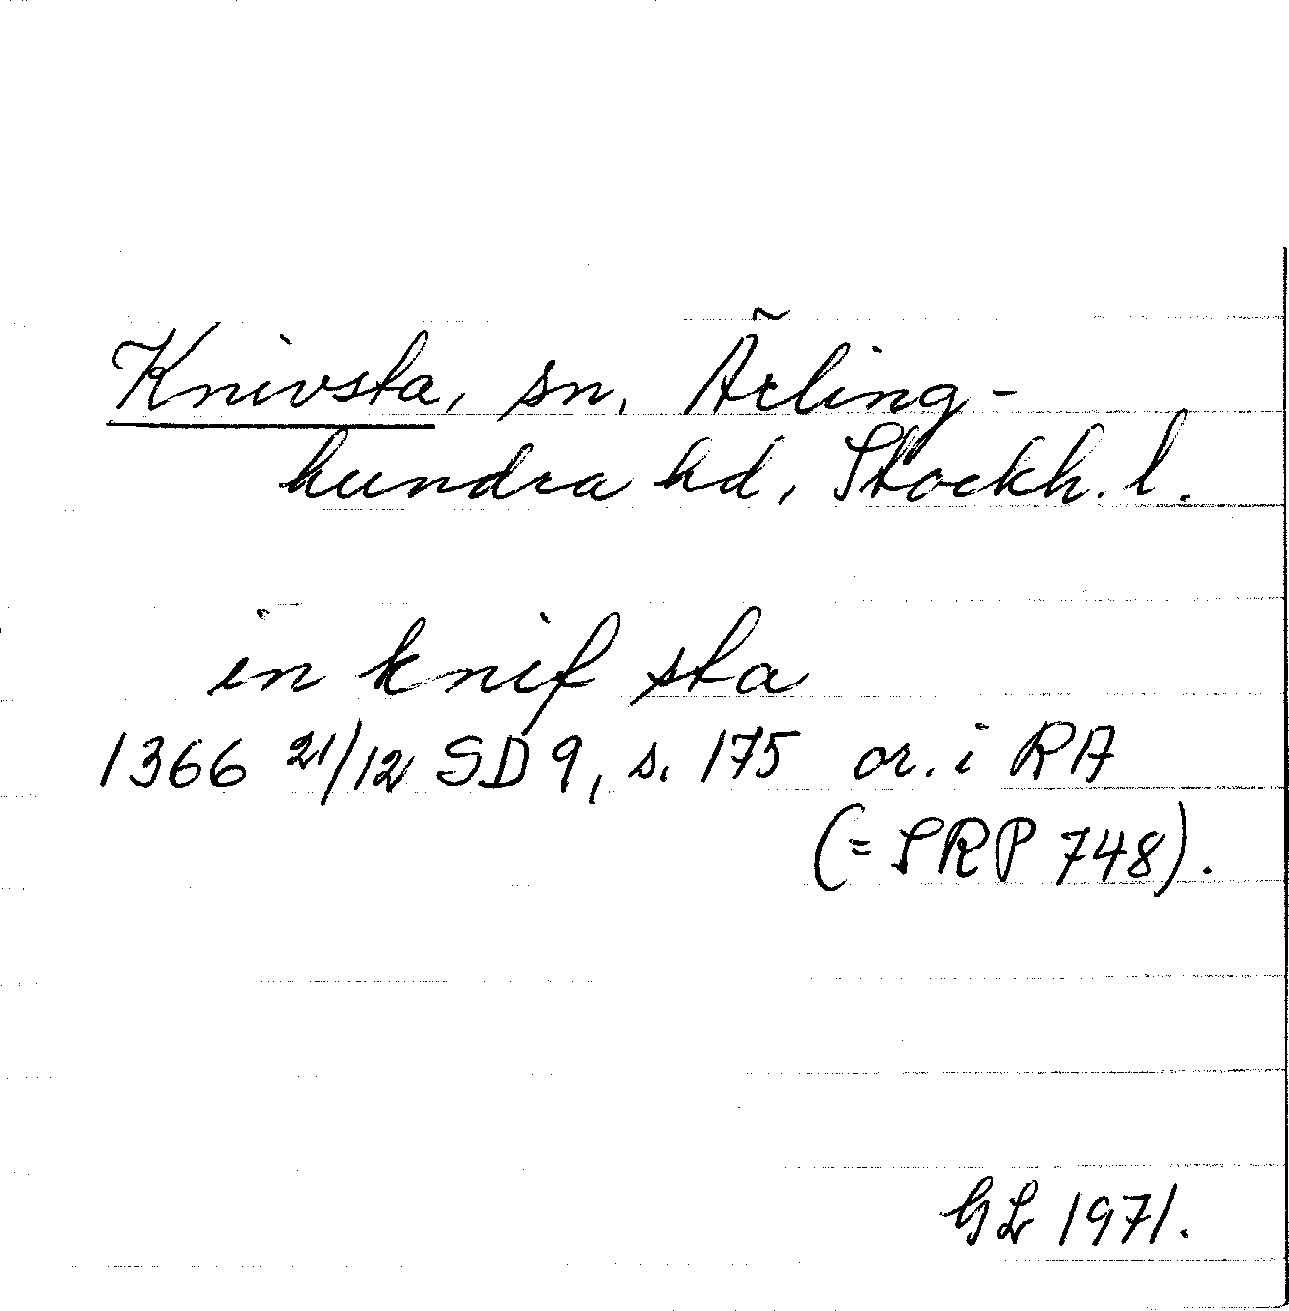 Knivsta, sn, Ärling-
hundra hd, Stockh. l.
in knif sta
1366 21/12 SD 9, s. 175 or. i RA
(= SRP 748).
GL 1971.